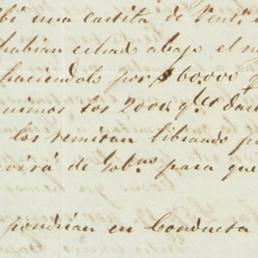 bi una cartita de
habian echado abajo el
haciendolo por $60000
nimos los 2000 q.les
los remitan librando
de tob.nas para que
pondrian en Conducta